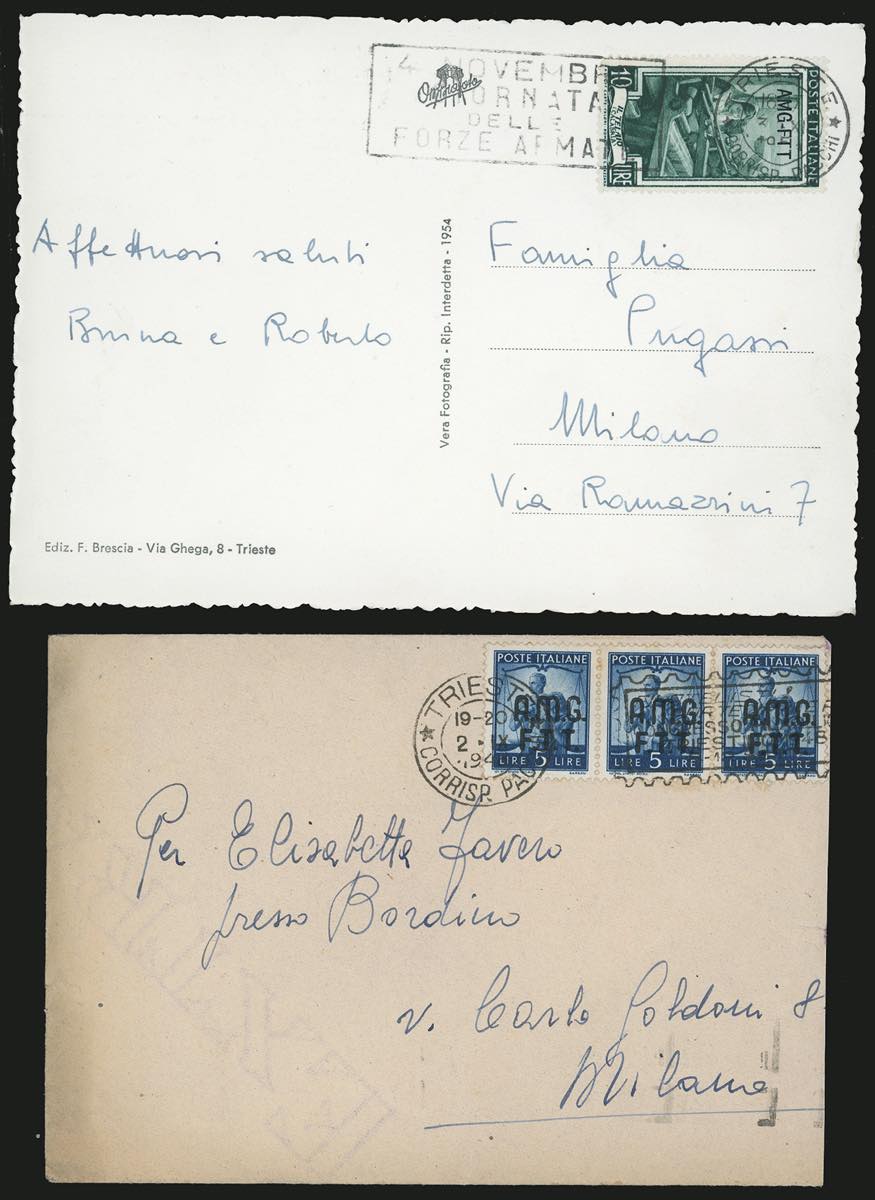 4 NOVEMBRE
GIORNATA
DELLE
FORZE ARMATE
POSTE ITALIANE
AMG-FTT
10
LIRE
TRIESTE
Affettuosi saluti
Bruna e Roberto
Vera Fotografia - Rip. Interdetta - 1954
Famiglia
Pugassi
Milano
Via Ramazzini 7
Ediz. F. Brescia - Via Ghega, 8 - Trieste
POSTE ITALIANE POSTE ITALIANE POSTE ITALIANE
A.M.G. A.M.G. A.M.G.
F.T.T. F.T.T. F.T.T.
LIRE 5 LIRE LIRE 5 LIRE LIRE 5 LIRE
TRIESTE
19-20
2 · IX
CORRISP. PAC
Per Elisabetta Favero
presso Bordino
v. Carlo Goldoni 8
Milano